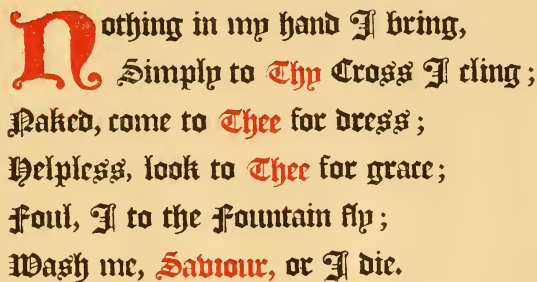 Nothing in my hand I bring,
Simply to Thy Cross I cling;
Naked, come to Thee for dress;
Helpless, look to Thee for grace;
Foul, I to the Fountain fly;
Wash me, Saviour, or I die.